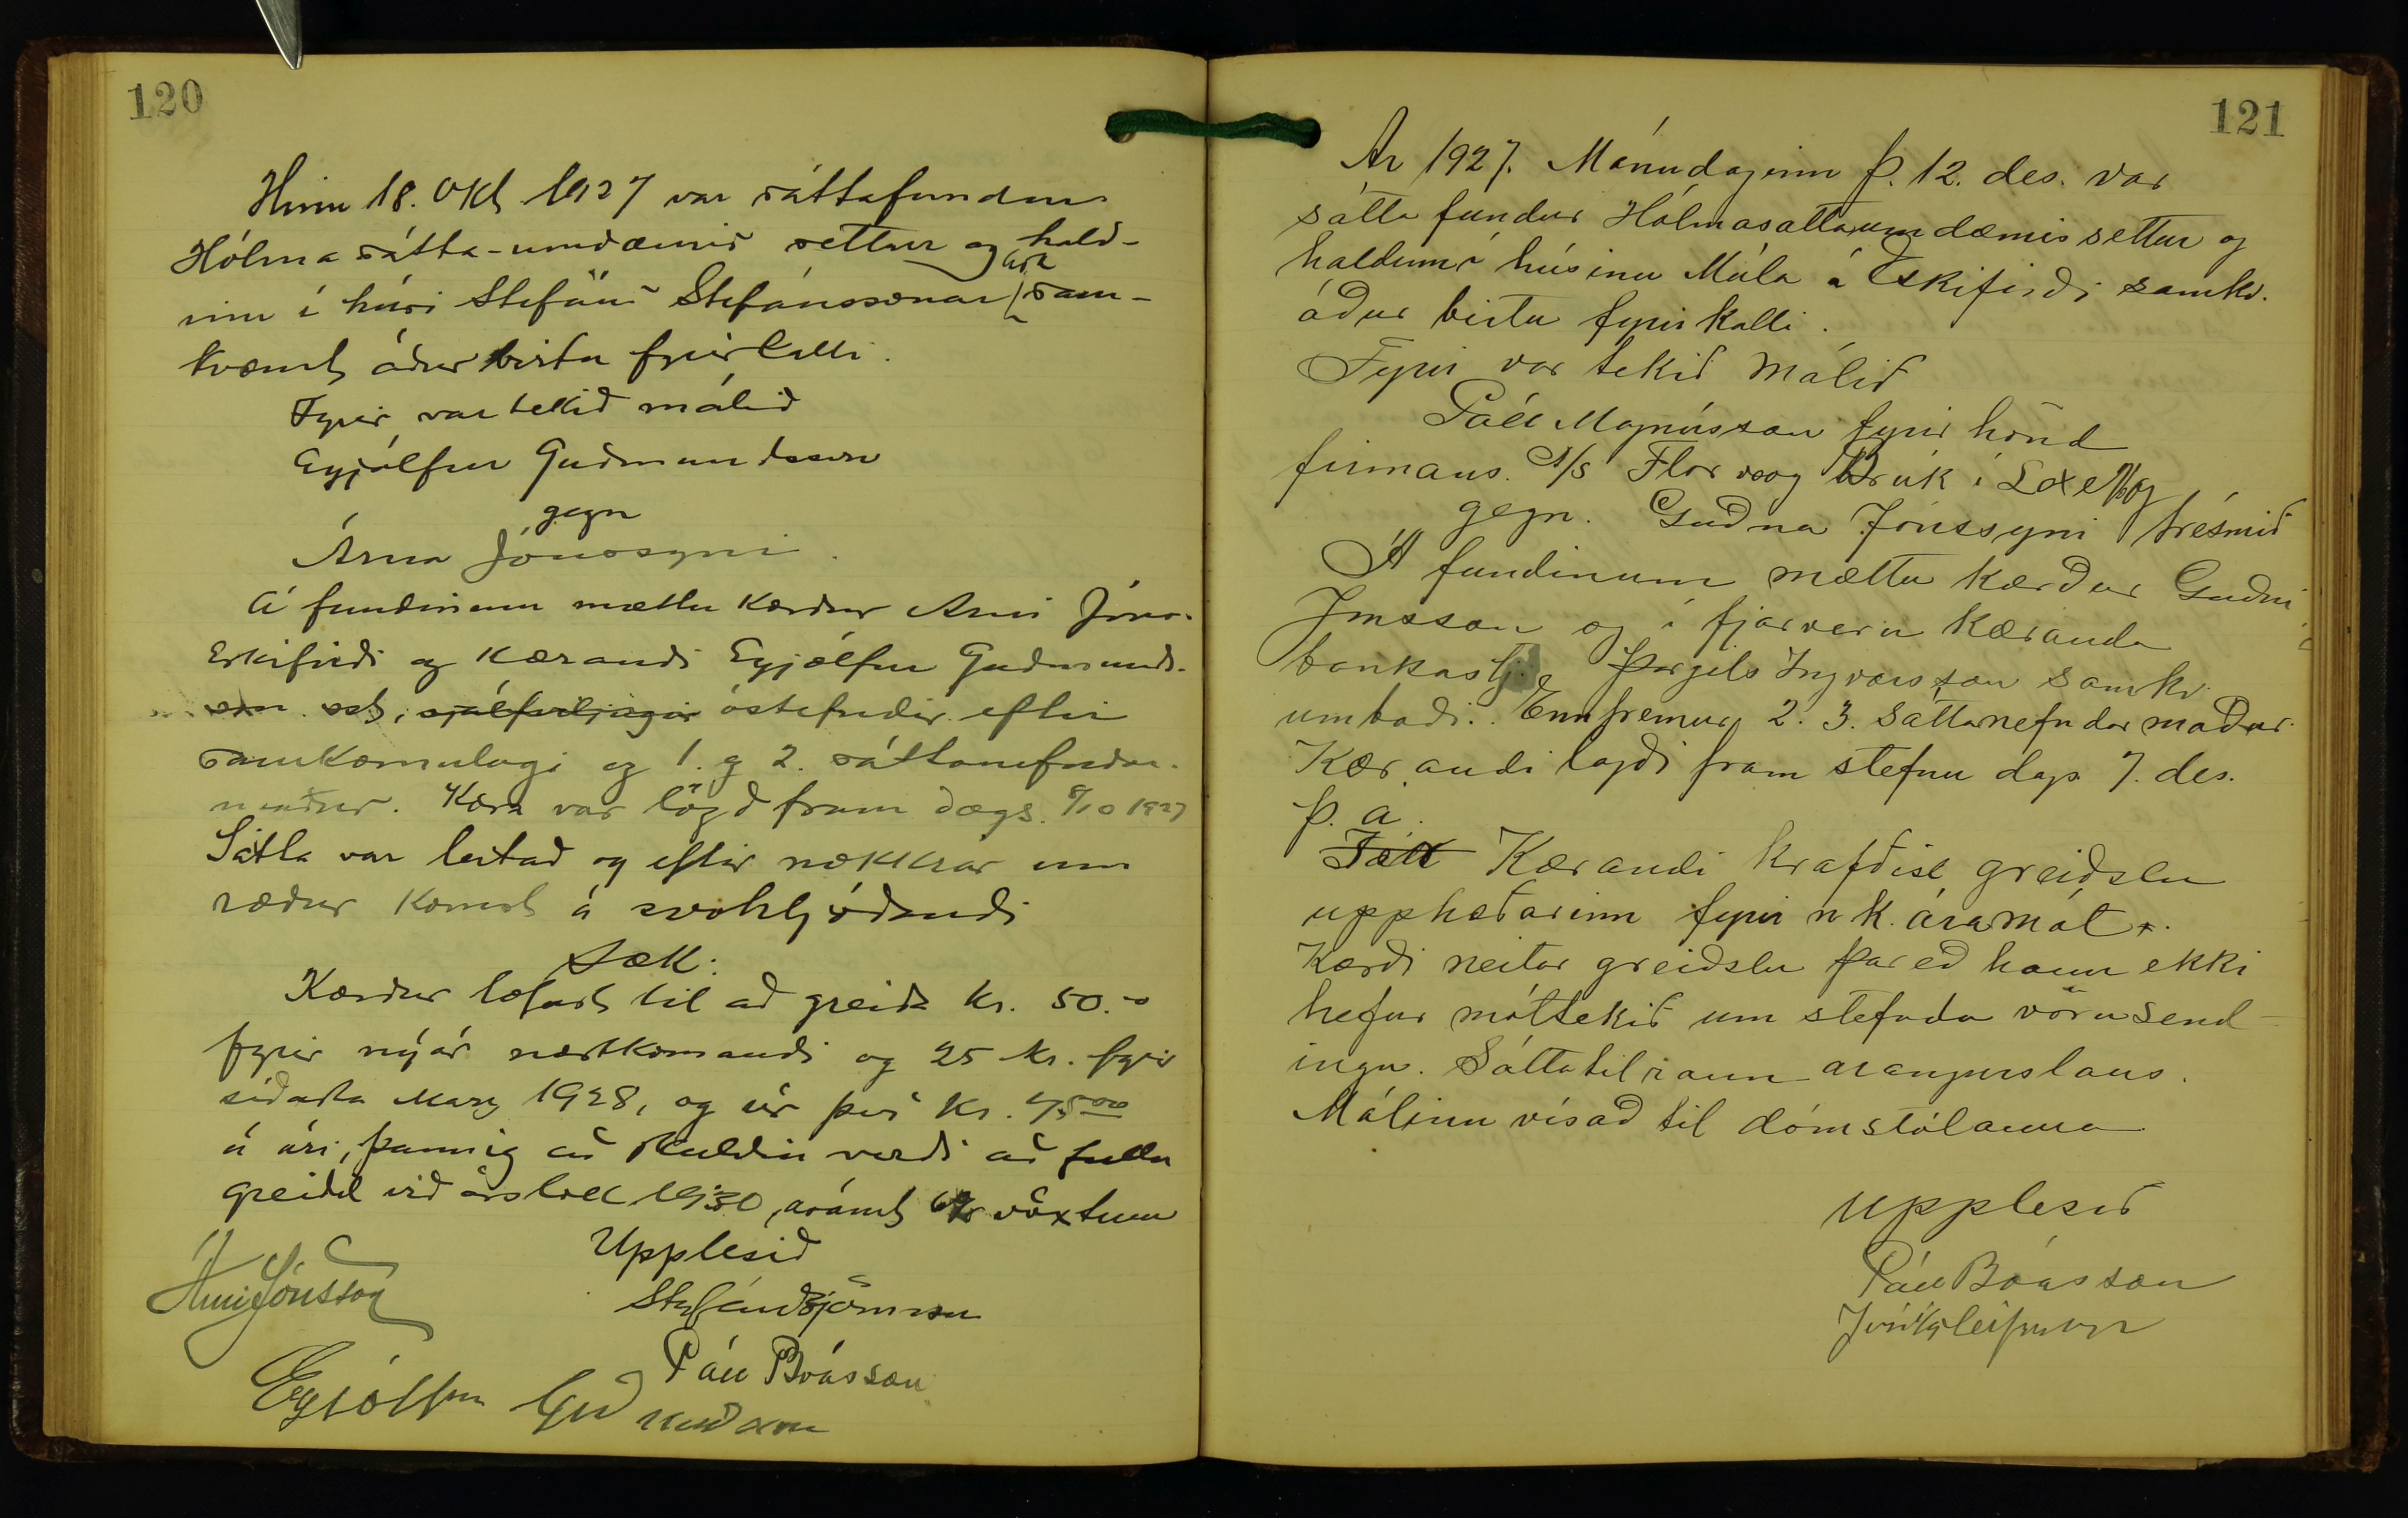 120
Hinn 18. Okt 1927 var sáttafundur
Hólma sátta-umdæmis settur og hald-
inn í húsi Stefáns Stefánssonar sam-
kvæmt áður birtu fyrirkalli.
Fyrir var tekið málið
Eyjólfur Guðmundsson
gegn
Árna Jónssyni.
Á fundinum mættu kærður Árni Jóns.
Eskifirði og kærandi Eyjólfur Guðmunds-
son sst, sjálfviljugir óstefndir eftir
samkomulagi og 1. og 2. sáttanefndar-
maður. Kæra var lögð fram dags. 8/10 1927
Sátta var leitað og eftir nokkrar um
ræður komst á svohljóðandi
Sætt:
Kærður lofast til að greiða kr. 50.00
fyrir nýár næstkomandi og 25 kr. fyrir
síðasta Marz 1928, og úr því kr. 75.00
á ári, þannig að skuldin verði að fullu
greidd við árslok 1930, ásamt 6% vöxtum
Upplesið
Árni Jónsson
Stefán Björnsson
Páll Bóasson
Eyjólfur Guðmundsson
121
Ár 1927. Mánudaginn þ. 12. des. var
sátta fundur Hólmasáttaumdæmis settur og
haldinn í húsinu Múla á Eskifirði samkv.
áður birtu fyrirkalli.
Fyrir var tekið málið
Páll Magnússon fyrir hönd
firmans. A/S Flor og Bruk í
gegn. Guðna Jónssyni trésmið
Á fundinum mættu kærður Guðni
Jónsson og í fjarveru kæranda
bankastj. Þorgils Ingvarsson samkv.
umboði. Ennfremur 2. 3. sáttanefndar maður.
Kærandi lagði fram stefnu dags 7. des.
þ. á.
Páll Kærandi krafðist greiðslu
upphæðarinn fyrir n.k. áramót.
Kærði neitar greiðslu þareð hann ekki
hefur móttekið um stefnda vörusend-
ingu. Sáttatilraun árangurslaus.
Málinu vísað til dómstólanna
Upplesið
Páll Bóasson